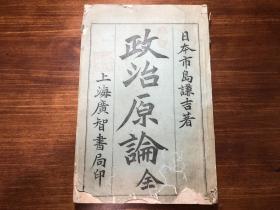 日本市島謙吉著
政治原論全
上海廣智書局印